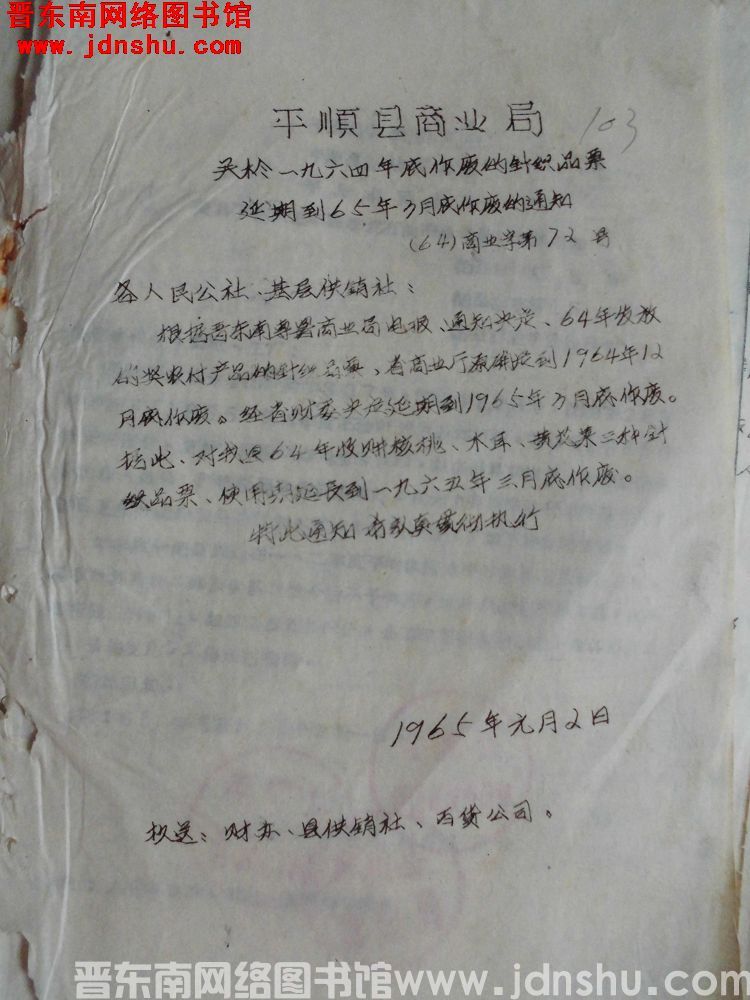 晋东南网络图书馆
www.jdnshu.com
平順县商业局
103
关於一九六四年底作废的针织品票
延期到65年3月底作废的通知
(64)商业字第72号
各人民公社、基层供销社：
根据晋东南专署商业局电报、通知决定、64年发放
的奖农村产品的针织品票、省商业厅原确定到1964年12
月底作废。经省财委决定延期到1965年3月底作废。
据此、对我县64年收购核桃、木耳、黄花菜三种针
织品票、使用期延长到一九六五年三月底作废。
特此通知 希认真贯彻执行
1965年元月2日
抄送：财办、县供销社、百货公司。
晋东南网络图书馆www.jdnshu.com